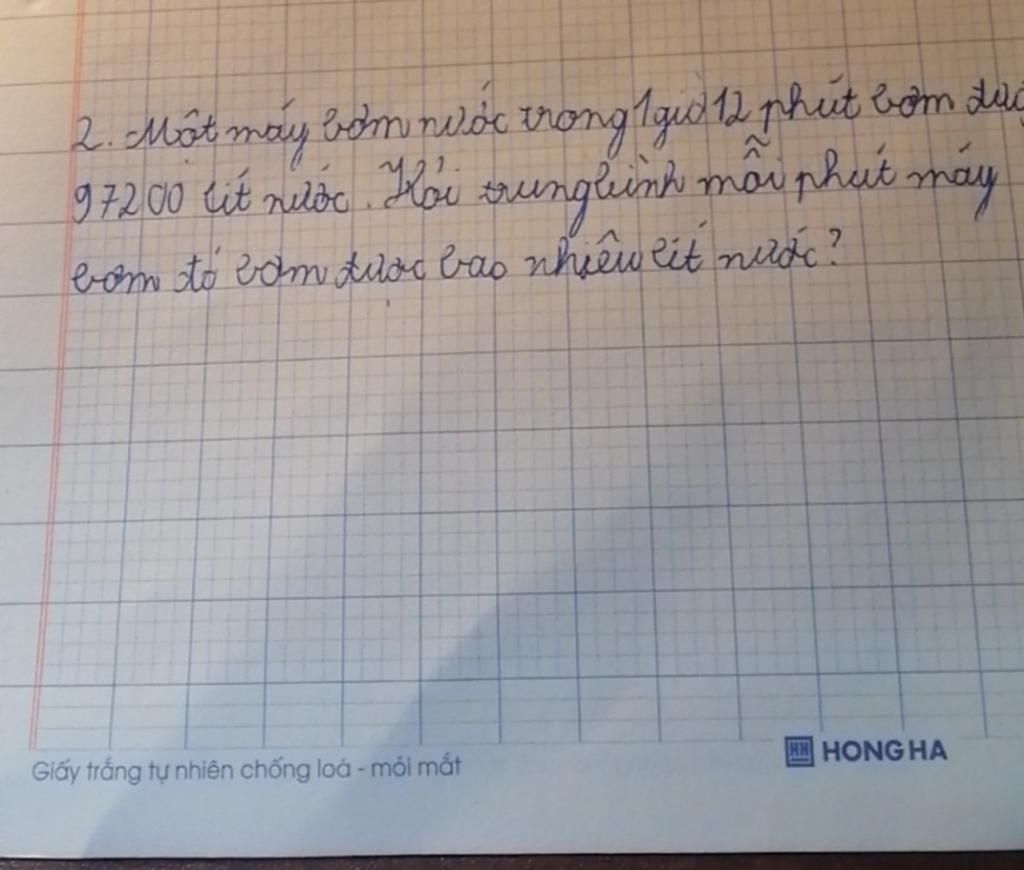 2. Một máy bơm nước trong 1 giờ 12 phút bơm đượ
97200 lít nước. Hỏi trung bình mỗi phút máy
bơm đó bơm được bao nhiêu lít nước?
Giấy trắng tự nhiên chống loá - mỏi mắt
HH HONG HA